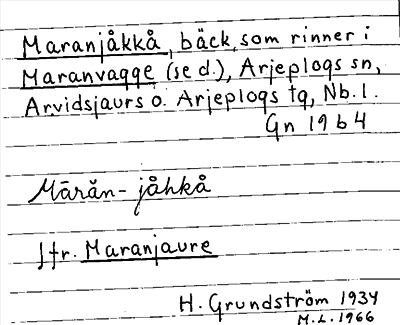 Maranjåkkå, bäck, som rinner i
Maranvagge (se d.), Arjeplogs sn,
Arvidsjaurs o. Arjeplogs tg, Nb. l.
Gn 1964
Mārăn- jåhkå
Jfr. Maranjaure
H. Grundström 1934
M.L. 1966